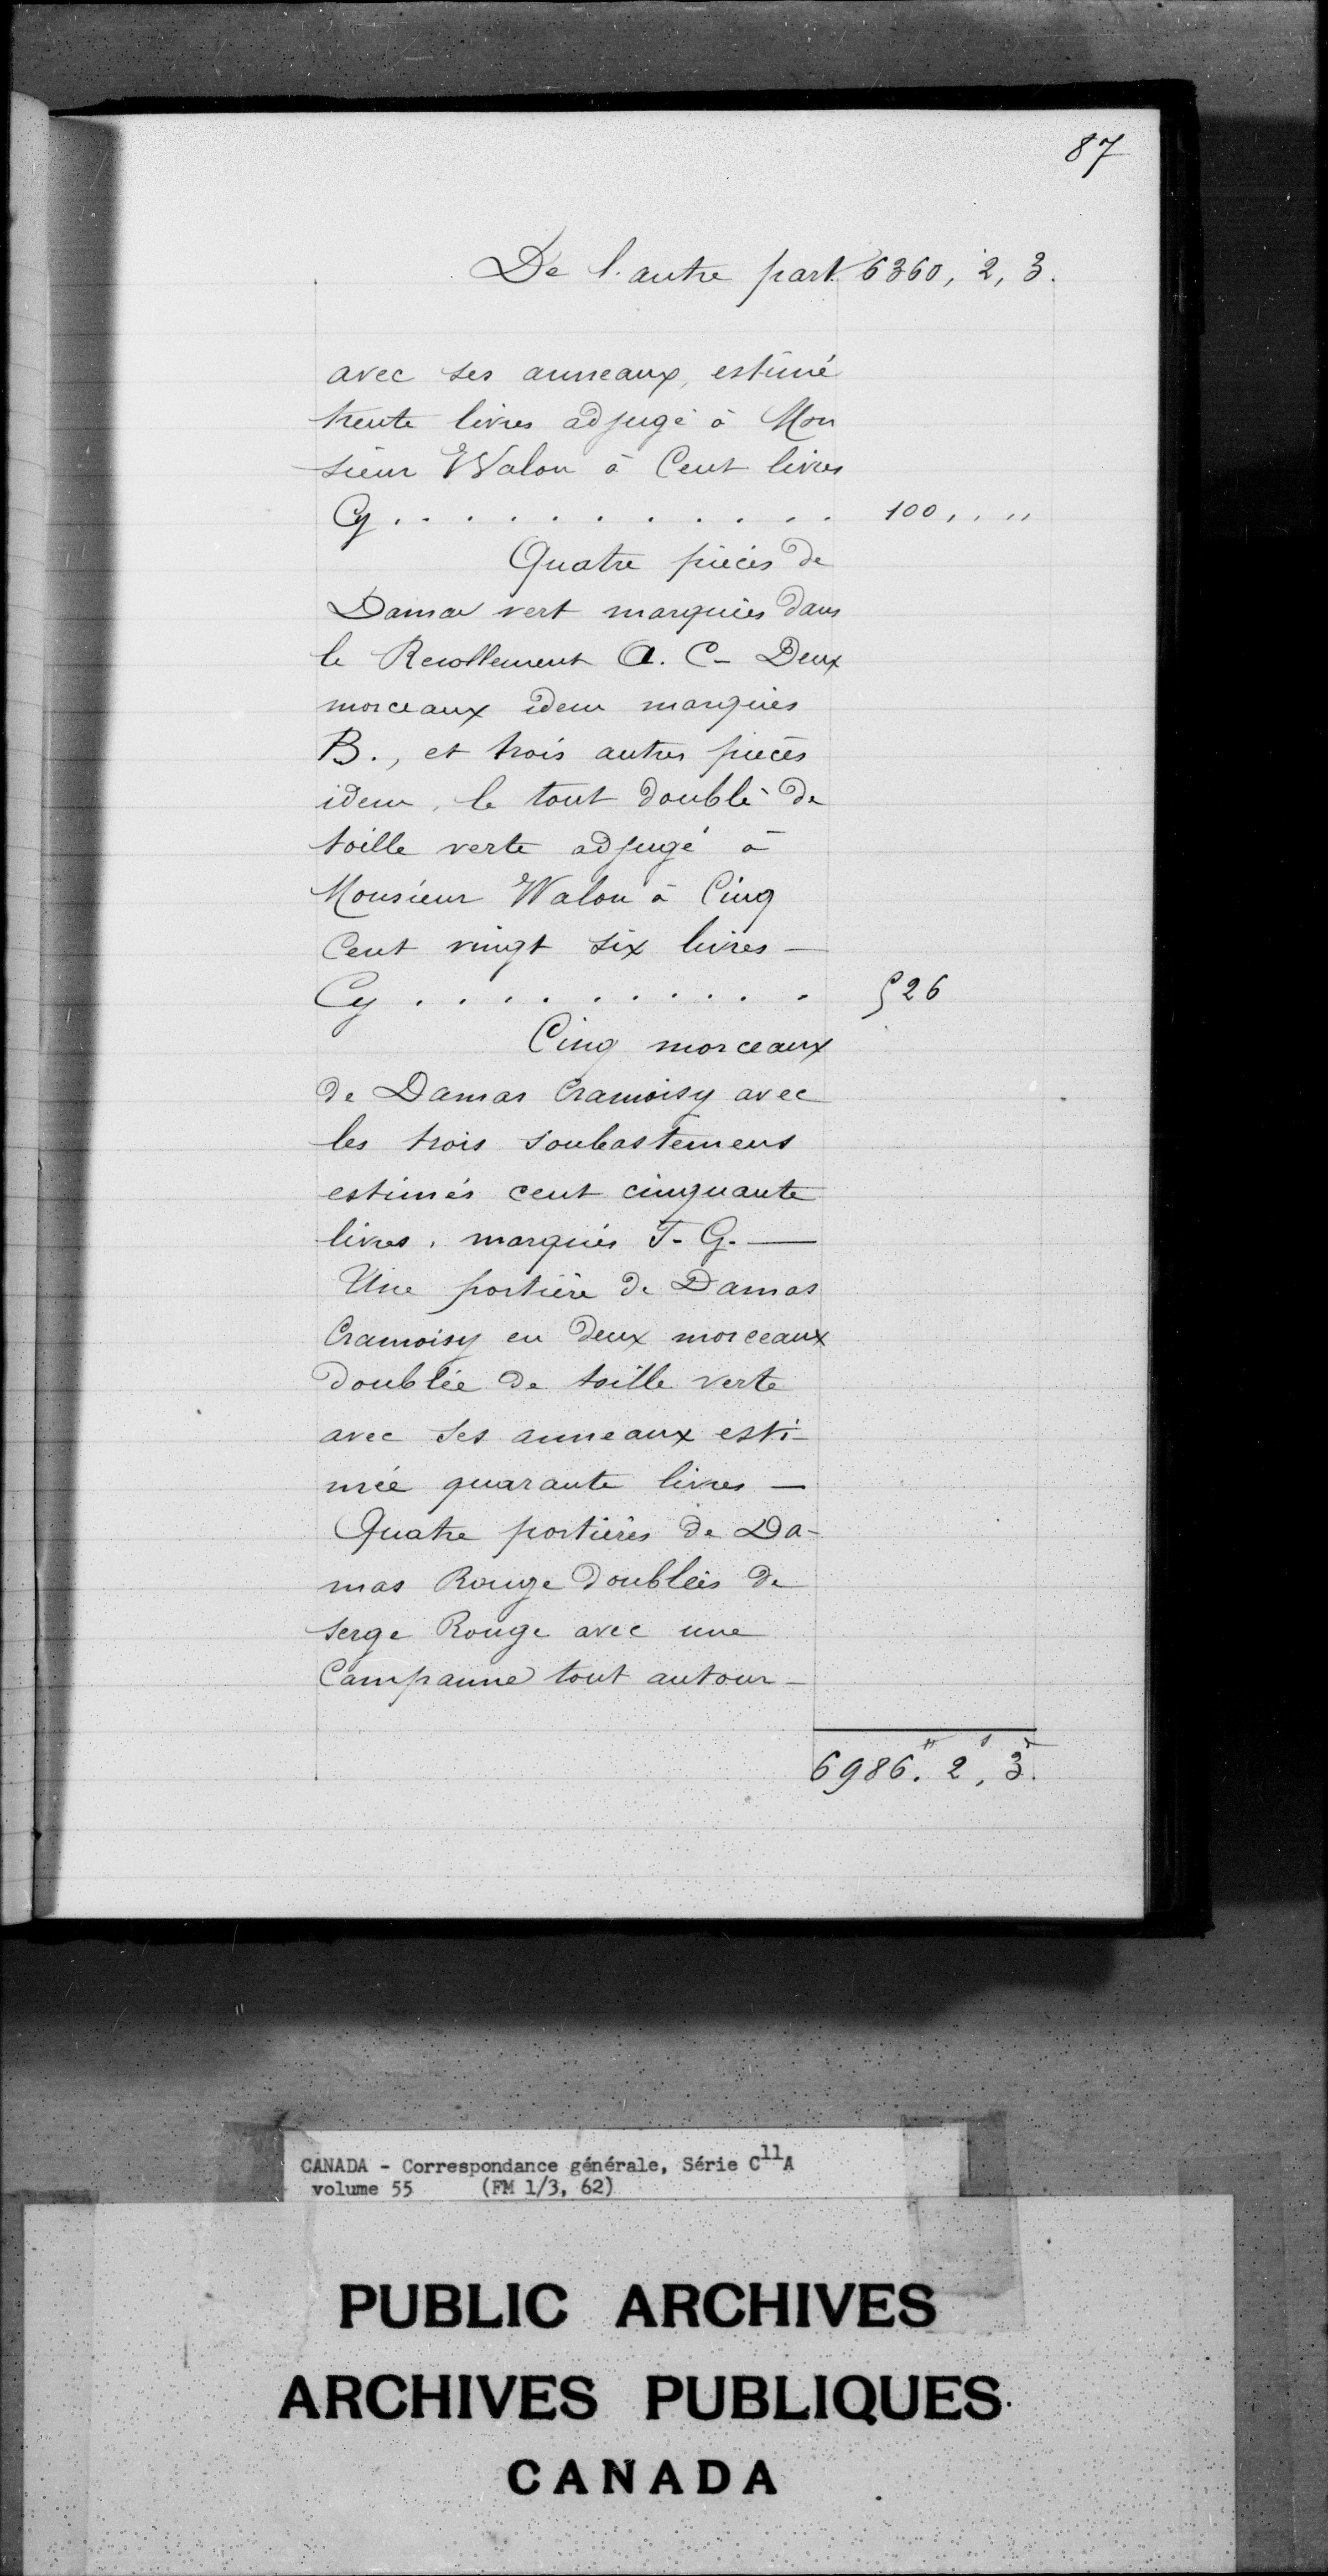 87
De l'autre part 6360, 2, 3.
avec ses anneaux, estimé
trente livres adjugé à Mon
sieur Walon à Cent livres
Cy . . . . . . . . . . . 100 , , ,,
Quatre pièces de
Damas vert marquées dans
le Recollement A. C- Deux
morceaux idem marqués
B., et trois autres pièces
idem, le tout doublé de
toille verte adjugé à
Monsieur Walon à Cinq
Cent vingt six livres -
Cy . . . . . . . . . . 526
Cinq morceaux
de Damas Cramoisy avec
les trois soubastemens
estimés cent cinquante
livres, marqués F. G. -
Une portière de Damas
Cramoisy en deux morceaux
doublée de toille verte
avec ses anneaux esti-
mée quarante livres -
Quatre portières de Da-
mas Rouge doublées de
serge Rouge avec une
Campanne tout autour -
6986. 2, 3.
CANADA - Correspondance générale, Série C11A
volume 55 (FM 1/3, 62)
PUBLIC ARCHIVES
ARCHIVES PUBLIQUES
CANADA